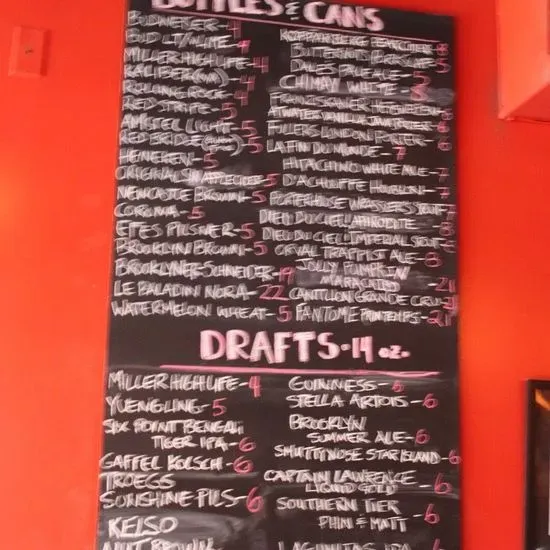 BOTTLES & CANS
BUDWEISER - 4
BUD LT/
MILLER HIGH LIFE - 4
KALIBER
ROLLING ROCK - 4
RED STRIPE - 5
AMSTEL LIGHT - 5
RED BRIDGE - 5
HEINEKEN - 5
ORIGINAL SIN APPLE CIDER - 5
NEWCASTLE BROWN - 5
CORONA - 5
EFES PILSNER - 5
BROOKLYN BROWN - 5
BROOKLYNER-SCHNEIDER - 19
LE BALADIN NORA - 22
WATERMELON WHEAT - 5
DALES PALE ALE - 5
CHIMAY WHITE - 8
FRANZISKANER HEFEWEIZEN
ATWATER VANILLA JAVA PORTER - 6
FULLERS LONDON PORTER - 6
LA FIN DU MONDE - 7
HITACHINO WHITE ALE - 7
D'ACHOUFFE HOUBLON - 7
PORTERHOUSE WRASSLERS STOUT - 7
DIEU DU CIEL! APHRODITE - 8
DIEU DU CIEL! IMPERIAL STOUT - 8
ORVAL TRAPPIST ALE - 8
JOLLY PUMPKIN
MARACAIBO - 21
CANTILLON GRANDE CRU - 21
FANTOME PRINTEMPS - 21
DRAFTS - 14 oz.
MILLER HIGH LIFE - 4
YUENGLING - 5
SIX POINT BENGALI
TIGER IPA - 6
GAFFEL KOLSCH - 6
TROEGS
SUNSHINE PILS - 6
KELSO
NUT BROWN
GUINNESS - 6
STELLA ARTOIS - 6
BROOKLYN
SUMMER ALE - 6
SMUTTYNOSE STAR ISLAND - 6
CAPTAIN LAWRENCE
LIQUID GOLD - 6
SOUTHERN TIER
PHIN & MATT - 6
LAGUNITAS IPA